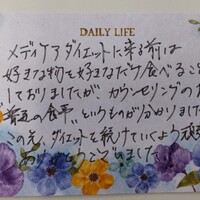 DAILY LIFE
メディケアダイエットに来る前は
好きな物を好きなだけ食べること
しておりましたがカウンセリングの
普通の食事" というものが分かりました
この先、ダイエットを続けていくよう頑
ありがとうございました。